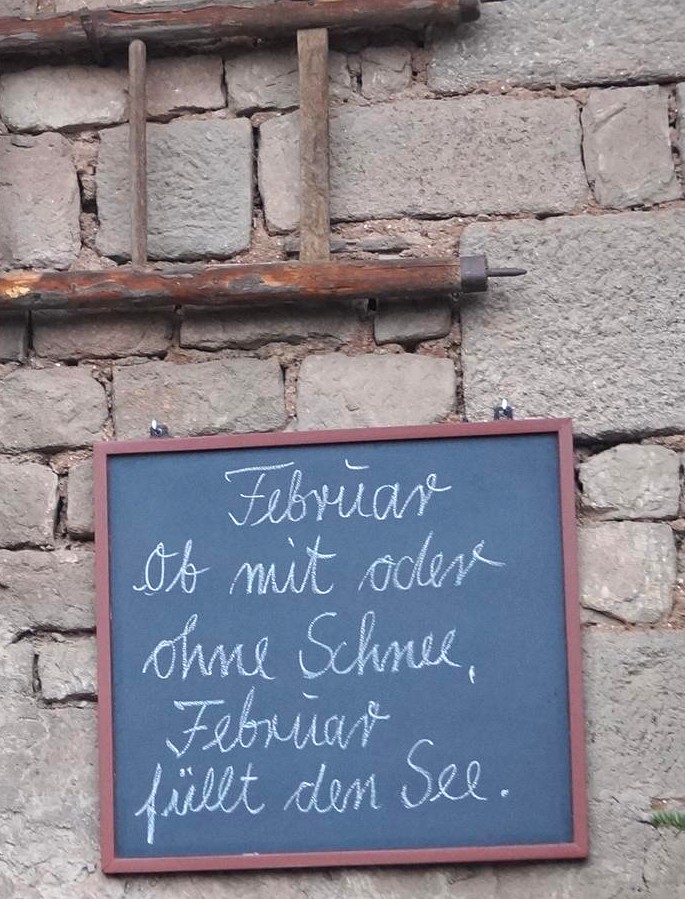 Februar
Ob mit oder
ohne Schnee,
Februar
füllt den See.